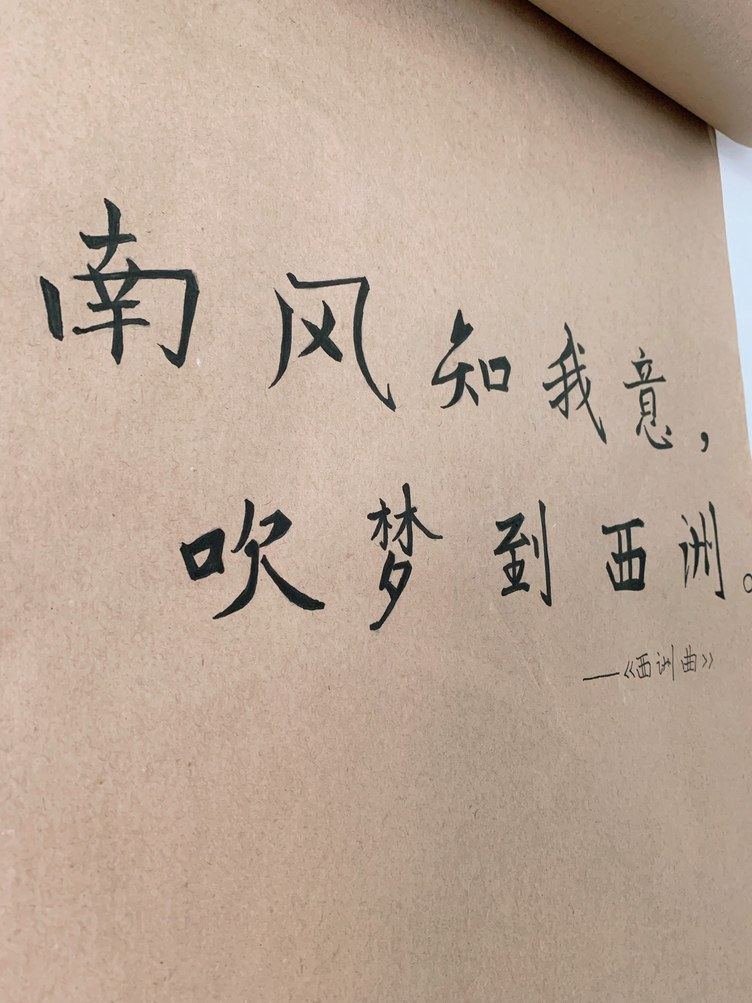 南风知我意，
吹梦到西洲。
——《西洲曲》